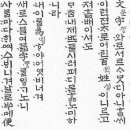 文문字ᄍᆞᆼ와로서르ᄉᆞᄆᆞᆺ디아니ᄒᆞᆯ
이런젼ᄎᆞ로어린百ᄇᆡᆨ姓셔ᇰ이니르고
져호ᇙ배이셔도
ᄆᆞᄎᆞᆷ내제ᄠᅳ들시러펴디몯ᄒᆞᇙ노미
하니라내이ᄅᆞᆯ爲윙ᄒᆞ야어엿비너겨
새로스믈여듧字ᄍᆞᆼᄅᆞᆯᄆᆡᇰᄀᆞ노니
사ᄅᆞᆷ마다ᄒᆡᅇᅧ수ᄫᅵ니겨날로ᄡᅮ메便